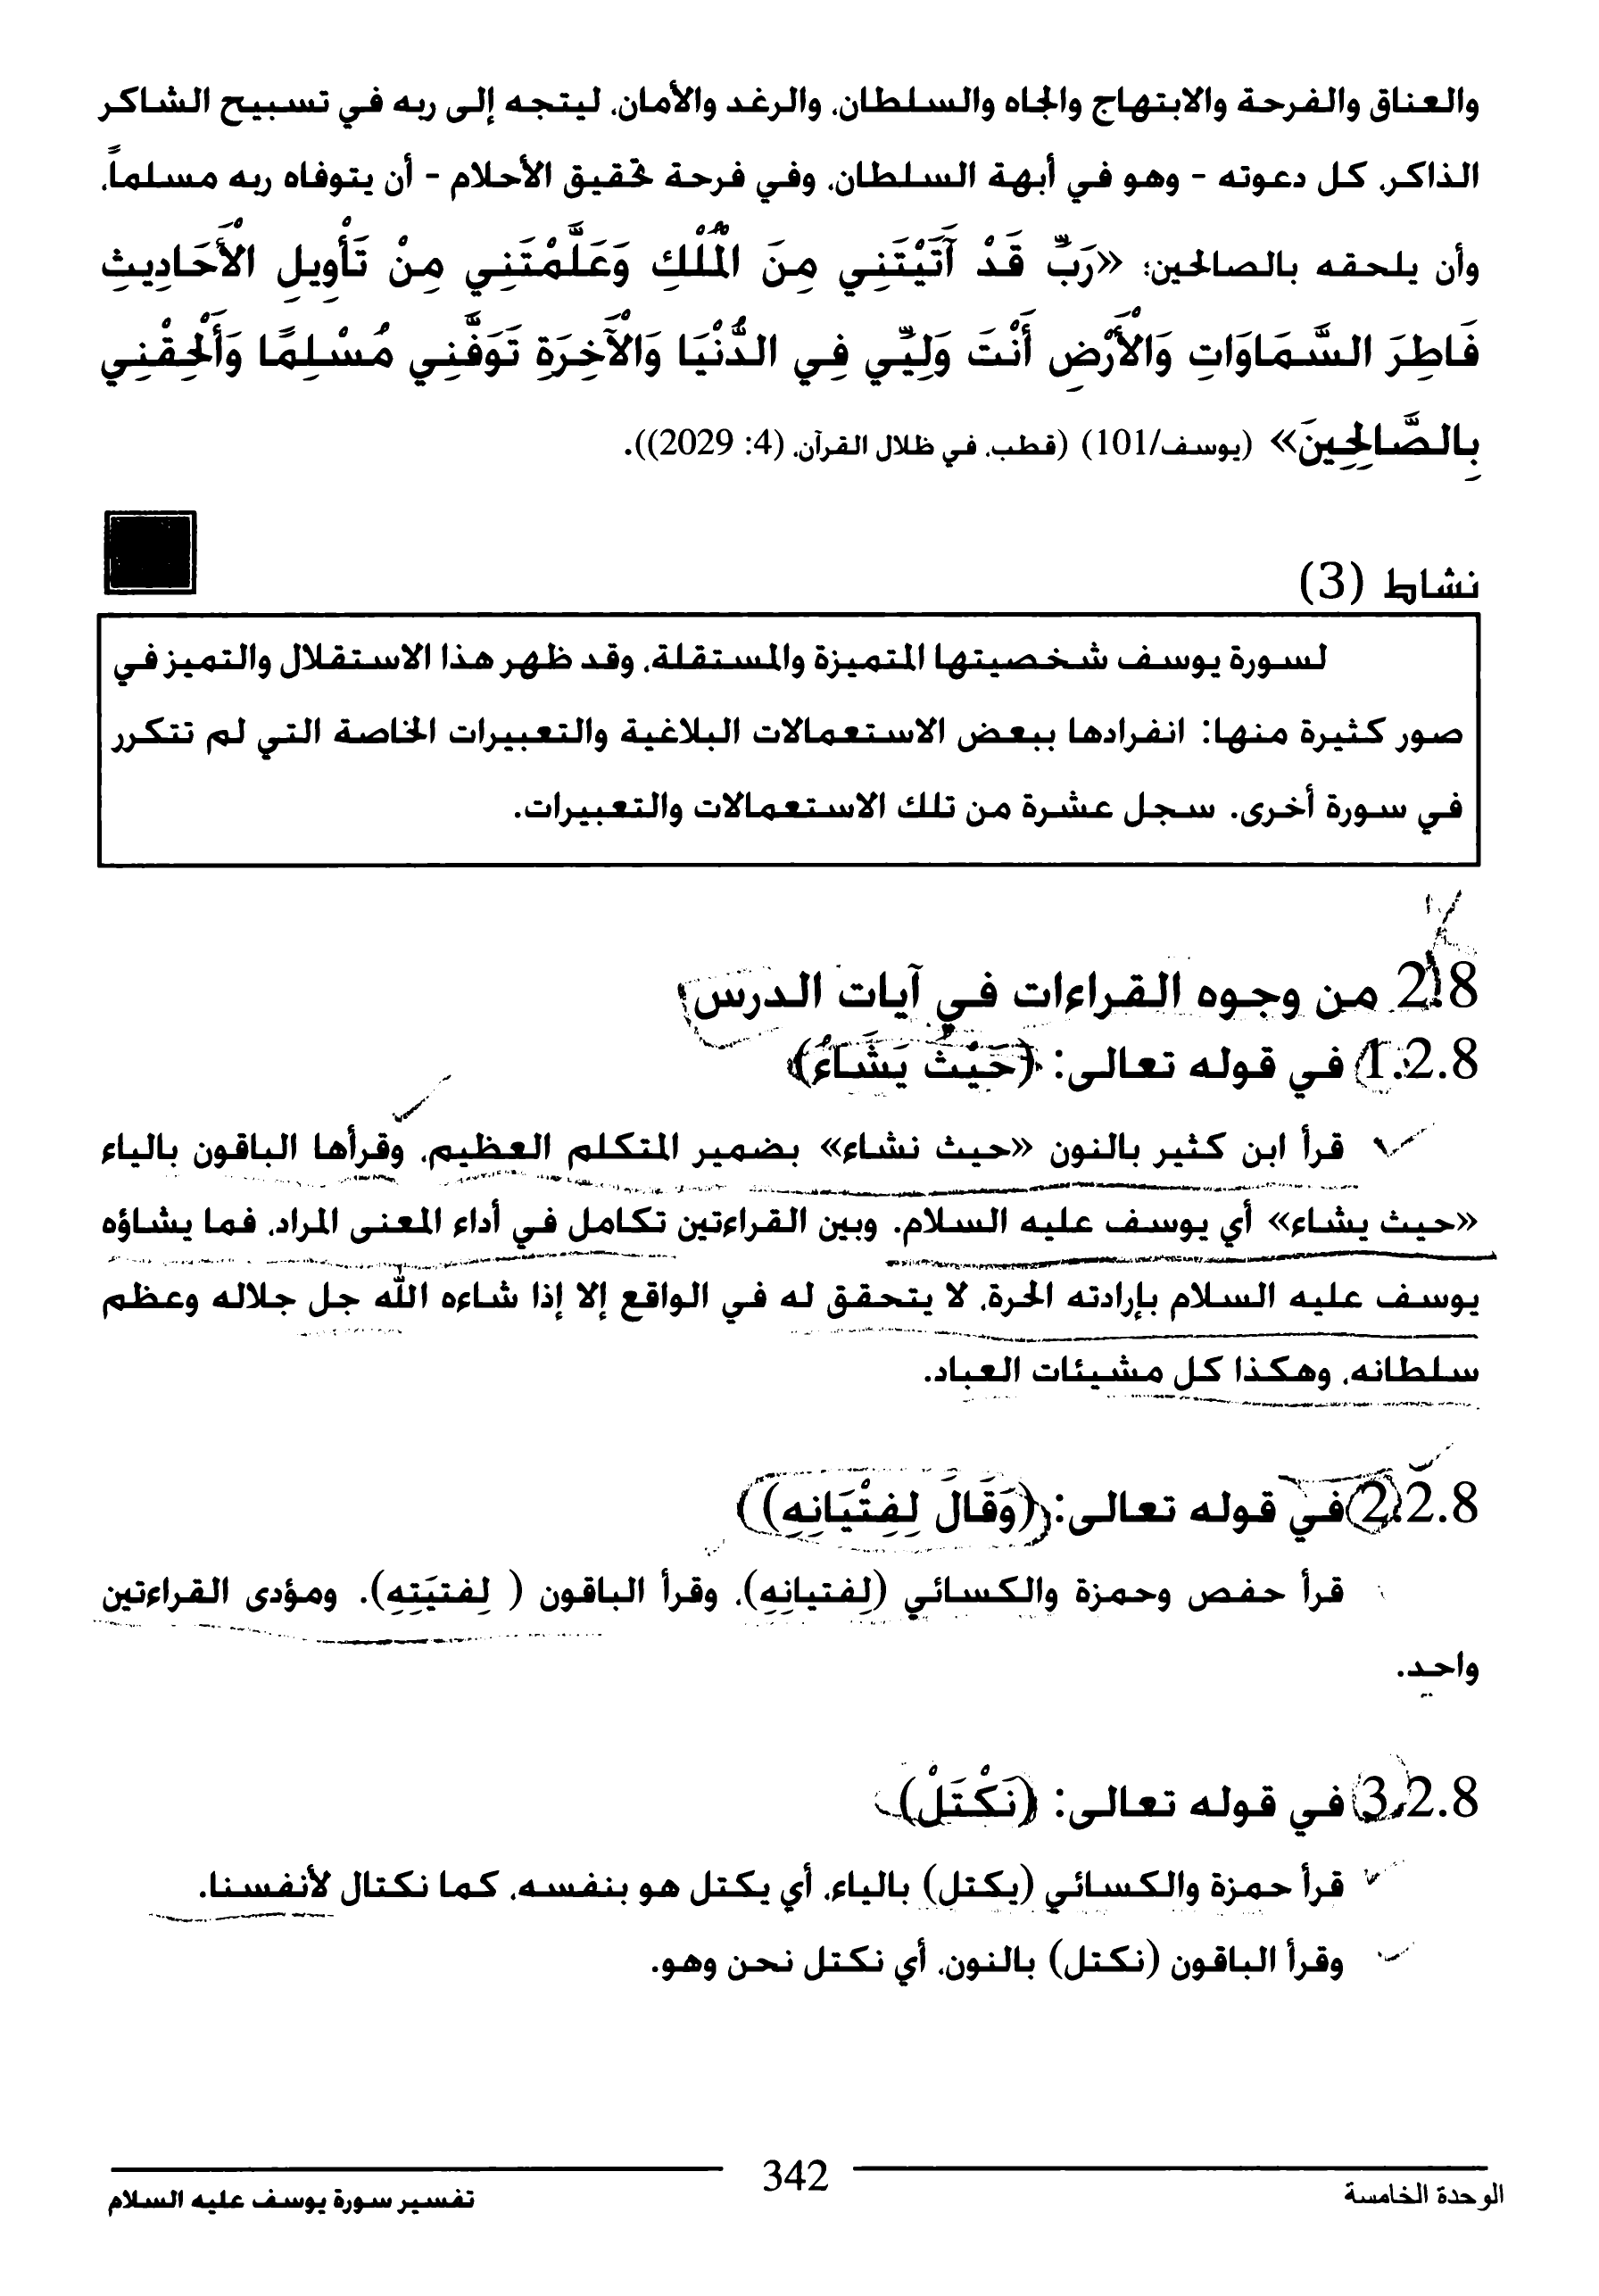 والعناق والفرحة والابتهاج والجاه والسلطان، والرغد والأمان، ليتجه إلى ربه في تسبيح الشاكر
الذاكر، كل دعوته - وهو في أبهة السلطان، وفي فرحة تحقيق الأحلام - أن يتوفاه ربه مسلماً،
وأن يلحقه بالصالحين: «رَبِّ قَدْ آَتَيْتَنِي مِنَ الْمُلْكِ وَعَلَّمْتَنِي مِنْ تَأْوِيلِ الْأَحَادِيثِ
فَاطِرَ السَّمَاوَاتِ وَالْأَرْضِ أَنْتَ وَلِيِّي فِي الدُّنْيَا وَالْآَخِرَةِ تَوَفَّنِي مُسْلِمًا وَأَلْحِقْنِي
بِالصَّالِحِينَ» (يوسف/101) (قطب، في ظلال القرآن، (4: 2029)).
نشاط (3)
لسورة يوسف شخصيتها المتميزة والمستقلة، وقد ظهر هذا الاستقلال والتميز في
صور كثيرة منها: انفرادها ببعض الاستعمالات البلاغية والتعبيرات الخاصة التي لم تتكرر
في سورة أخرى. سجل عشرة من تلك الاستعمالات والتعبيرات.
2.8 من وجوه القراءات في آيات الدرس
1.2.8 في قوله تعالى: (حَيْثُ يَشَاءُ)
قرأ ابن كثير بالنون «حيث نشاء» بضمير المتكلم العظيم، وقرأها الباقون بالياء
«حيث يشاء» أي يوسف عليه السلام. وبين القراءتين تكامل في أداء المعنى المراد، فما يشاؤه
يوسف عليه السلام بإرادته الحرة، لا يتحقق له في الواقع إلا إذا شاءه الله جل جلاله وعظم
سلطانه، وهكذا كل مشيئات العباد.
2.2.8 في قوله تعالى: (وَقَالَ لِفِتْيَانِهِ)
قرأ حفص وحمزة والكسائي (لِفتيانِهِ)، وقرأ الباقون ( لِفتيَتِهِ). ومؤدى القراءتين
واحد.
3.2.8 في قوله تعالى: (نَكْتَلْ)
قرأ حمزة والكسائي (يكتل) بالياء، أي يكتل هو بنفسه، كما نكتال لأنفسنا.
وقرأ الباقون (نكتل) بالنون، أي نكتل نحن وهو.
الوحدة الخامسة
342
تفسير سورة يوسف عليه السلام